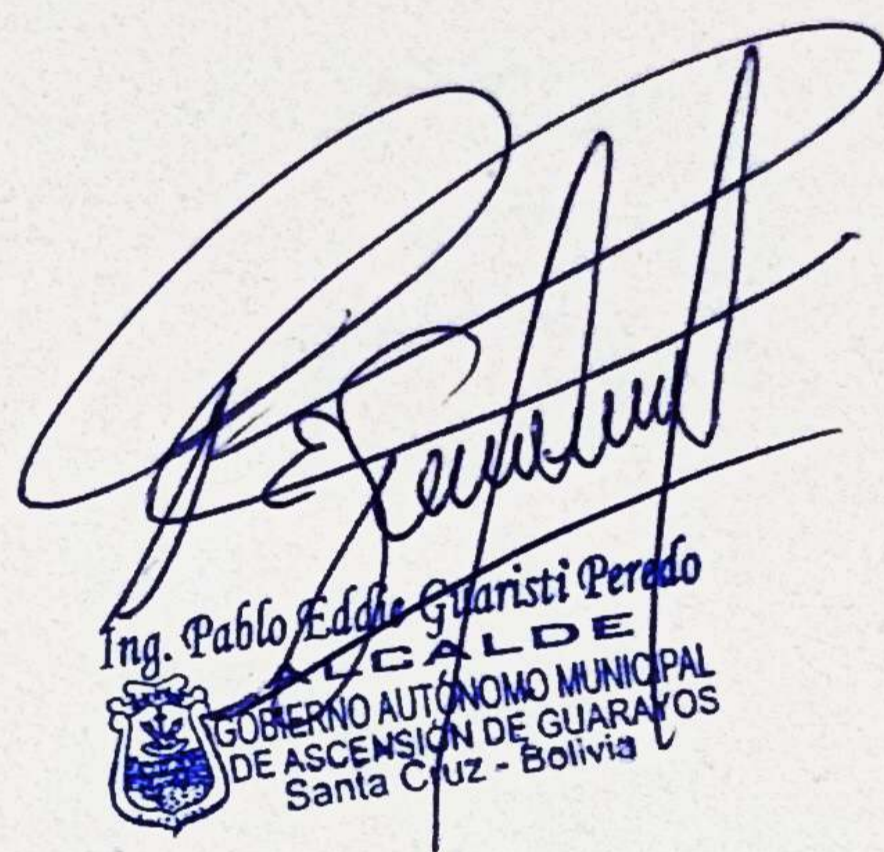 Ing. Pablo Eddie Guaristi Peredo
ALCALDE
GOBIERNO AUTÓNOMO MUNICIPAL
DE ASCENSIÓN DE GUARAYOS
Santa Cruz - Bolivia